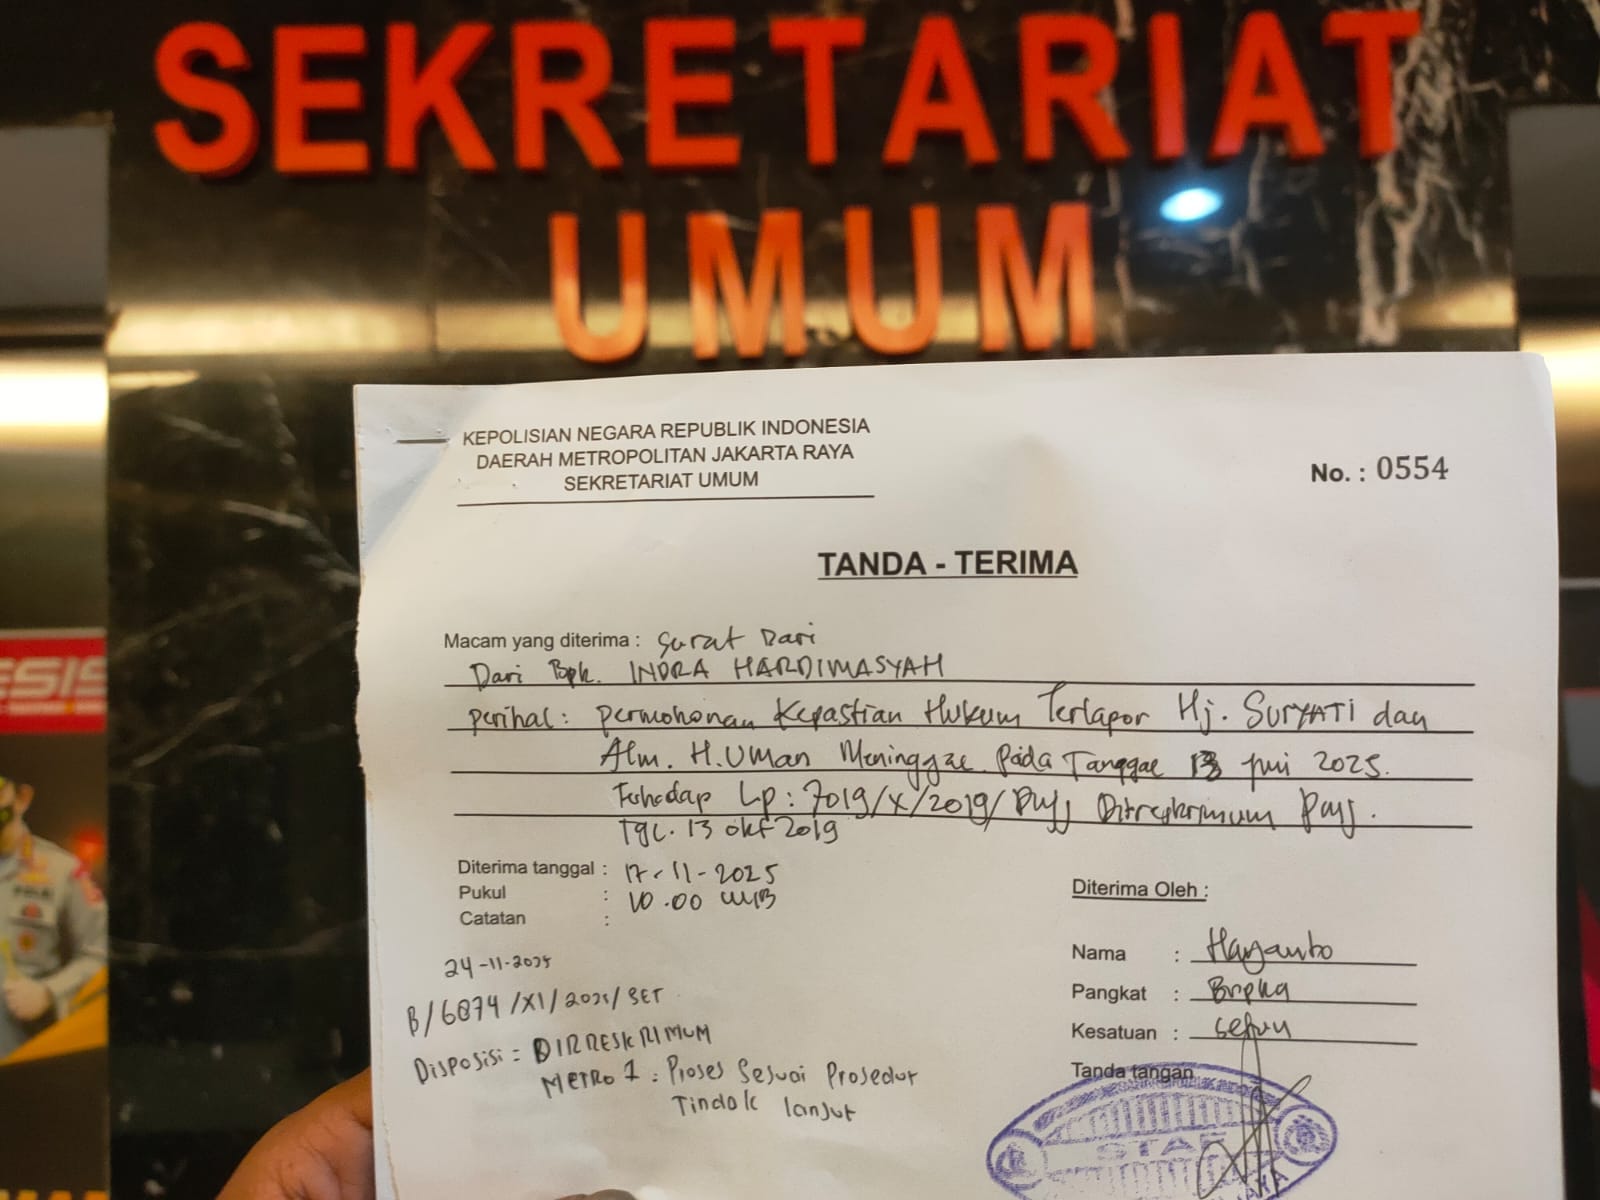 SEKRETARIAT
UMUM
KEPOLISIAN NEGARA REPUBLIK INDONESIA
DAERAH METROPOLITAN JAKARTA RAYA
SEKRETARIAT UMUM
No. : 0554
TANDA - TERIMA
Macam yang diterima : Surat Dari
Dari Bpk. INDRA HARDIMASYAH
perihal : permohonan Kepastian Hukum Terlapor Hj. SURYATI dan
Alm. H. UMan Meninggal Pada Tanggal 13 Juni 2025.
Terhadap Lp : 7019/X/2019/PMJ Ditreskrimum PMJ.
Tgl. 13 okt 2019
Diterima tanggal : 17-11-2025
Pukul : 10.00 WIB
Catatan :
24-11-2025
B/6874/XI/2025/SET
Disposisi = DIRRESKRIMUM
METRO 1 : Proses Sesuai Prosedur
Tindak lanjut
Diterima Oleh :
Nama : Haryanto
Pangkat : Bripka
Kesatuan : Setum
Tanda tangan
STAF
ESIS